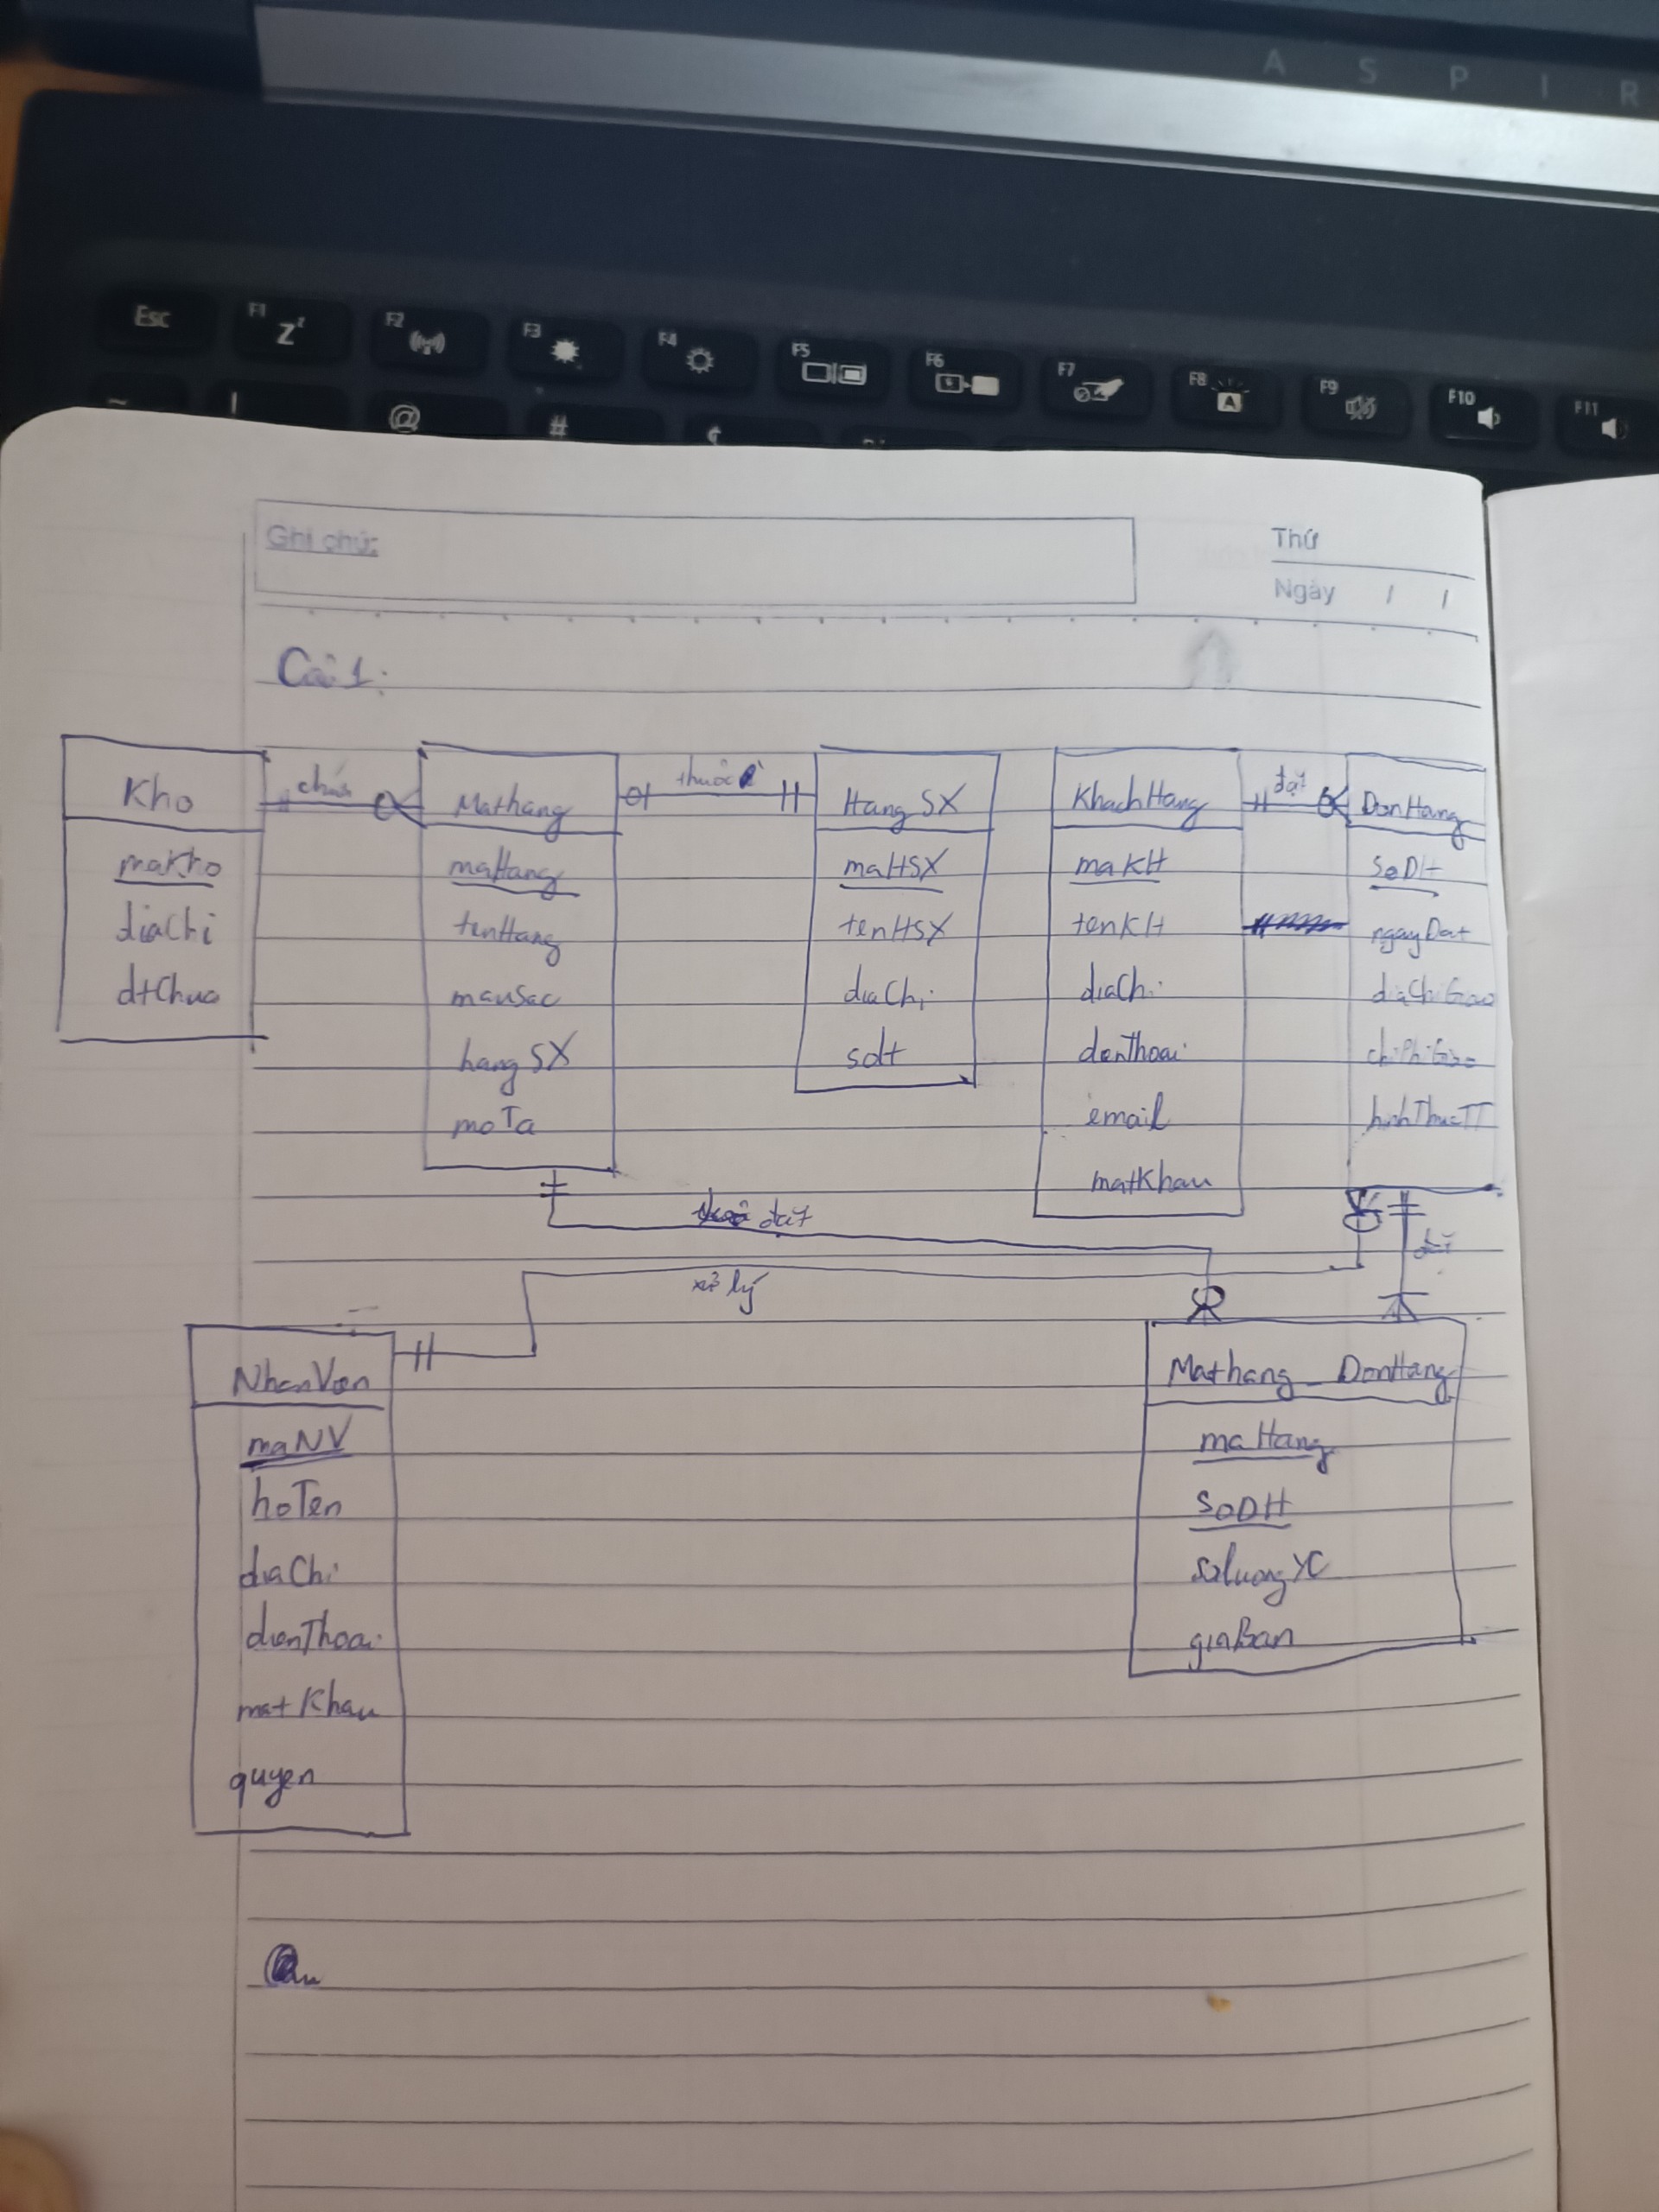 A S P I R
Esc F1 Z F2 F3 F4 F5 F6 F7 F8 A F9 F10 F11
~ ! @ #
Ghi chú:
Thứ
Ngày / /
Câu 1:
Kho
maKho
diaChi
dtChua
chứa
Mathang
maHang
tenHang
mauSac
hangSX
moTa
thuộc
HangSX
maHSX
tenHSX
diaChi
sdt
KhachHang
maKH
tenKH
diaChi
dienThoai
email
matKhau
đặt
DonHang
soDH
ngayDat
diaChiGiao
chiPhiGiao
hinhThucTT
đặt
xử lý
NhanVien
maNV
hoTen
diaChi
dienThoai
matKhau
quyen
Mathang_DonHang
maHang
SoDH
soluongYC
giaBan